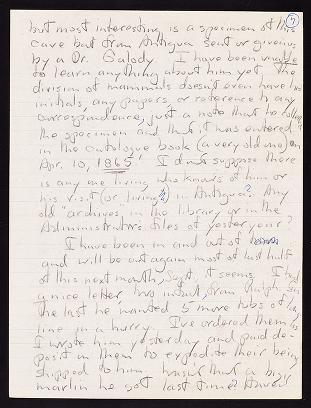 7
but most interesting is a specimen of this
cave bat from Antigua sent or given us
by a Dr. Galody. I have been unable
to learn anything about him yet. The
division of mammals doesn't even have his
initials, any papers, or reference to any
correspondence, just a note that he
the specimen and that it was entered
in the catalogue book (a very old one) on
Apr. 10, 1865. I don't suppose there
is any one living who knows of him or
his visit (or living?) in Antigua? Any
old "archives" in the library or in the
Administrator's files of yesteryear?
I have been in and out of
and will be out again most of last half
of this next month, Sept. it seems. I had
a nice letter, from Ralph. In
the last he wanted 5 more tubs of
line in a hurry. I've ordered them as
I wrote him yesterday and paid de-
posit on them to expedite their being
shipped to him. Wasn't that a big
marlin he got last time?